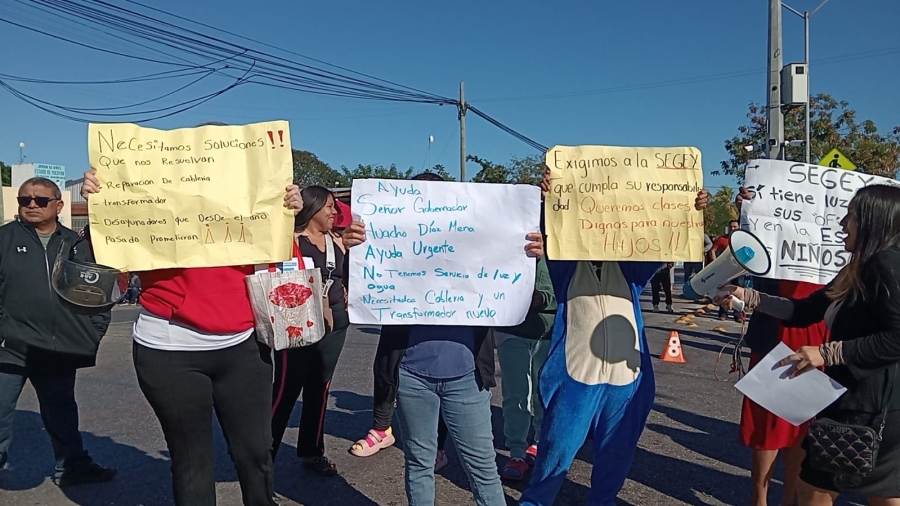 NeCesitamos Soluciones !!
Que nos Resuelvan
Reparación De Cableria
transformador
Desayunadores que DesDe el año
Pasado Prometieron ¡¡¡
Ayuda
Señor Gobernador
Huacho Díaz Mena
Ayuda Urgente
No Tenemos Servicio de luz y
agua
Necesitados Cableria y un
Transformador nuevo
Exigimos a la SEGEY
que cumpla su responsabili
dad Queremos clases
Dignas para nuestros
Hijos !!
SEGEY
Sí tiene luz
sus
Y en la
NIÑOS